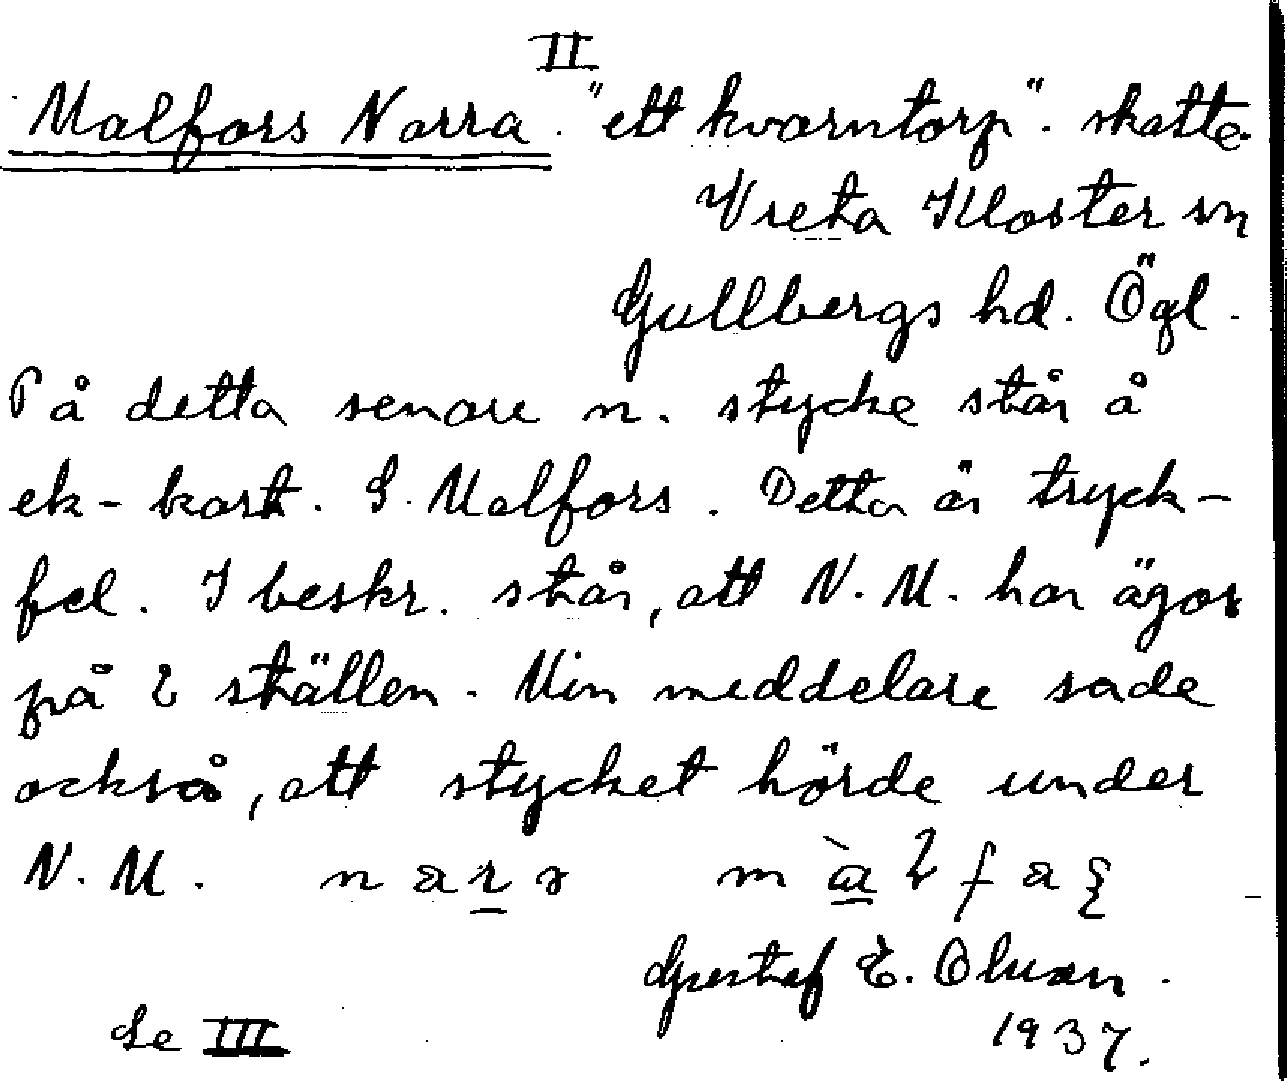 II
Malfors Norra. "ett kvarntorp". skatte.
Vreta Kloster sn
Gullbergs hd. Ögl.
På detta senare n. stycke står å
ek-kart. S. Malfors. Detta är tryck-
fel. I beskr. står, att N. M. har ägor
på 2 ställen. Min meddelare sade
också, att stycket hörde under
N. M.
Gustaf E. Olsson.
Se III 1937.